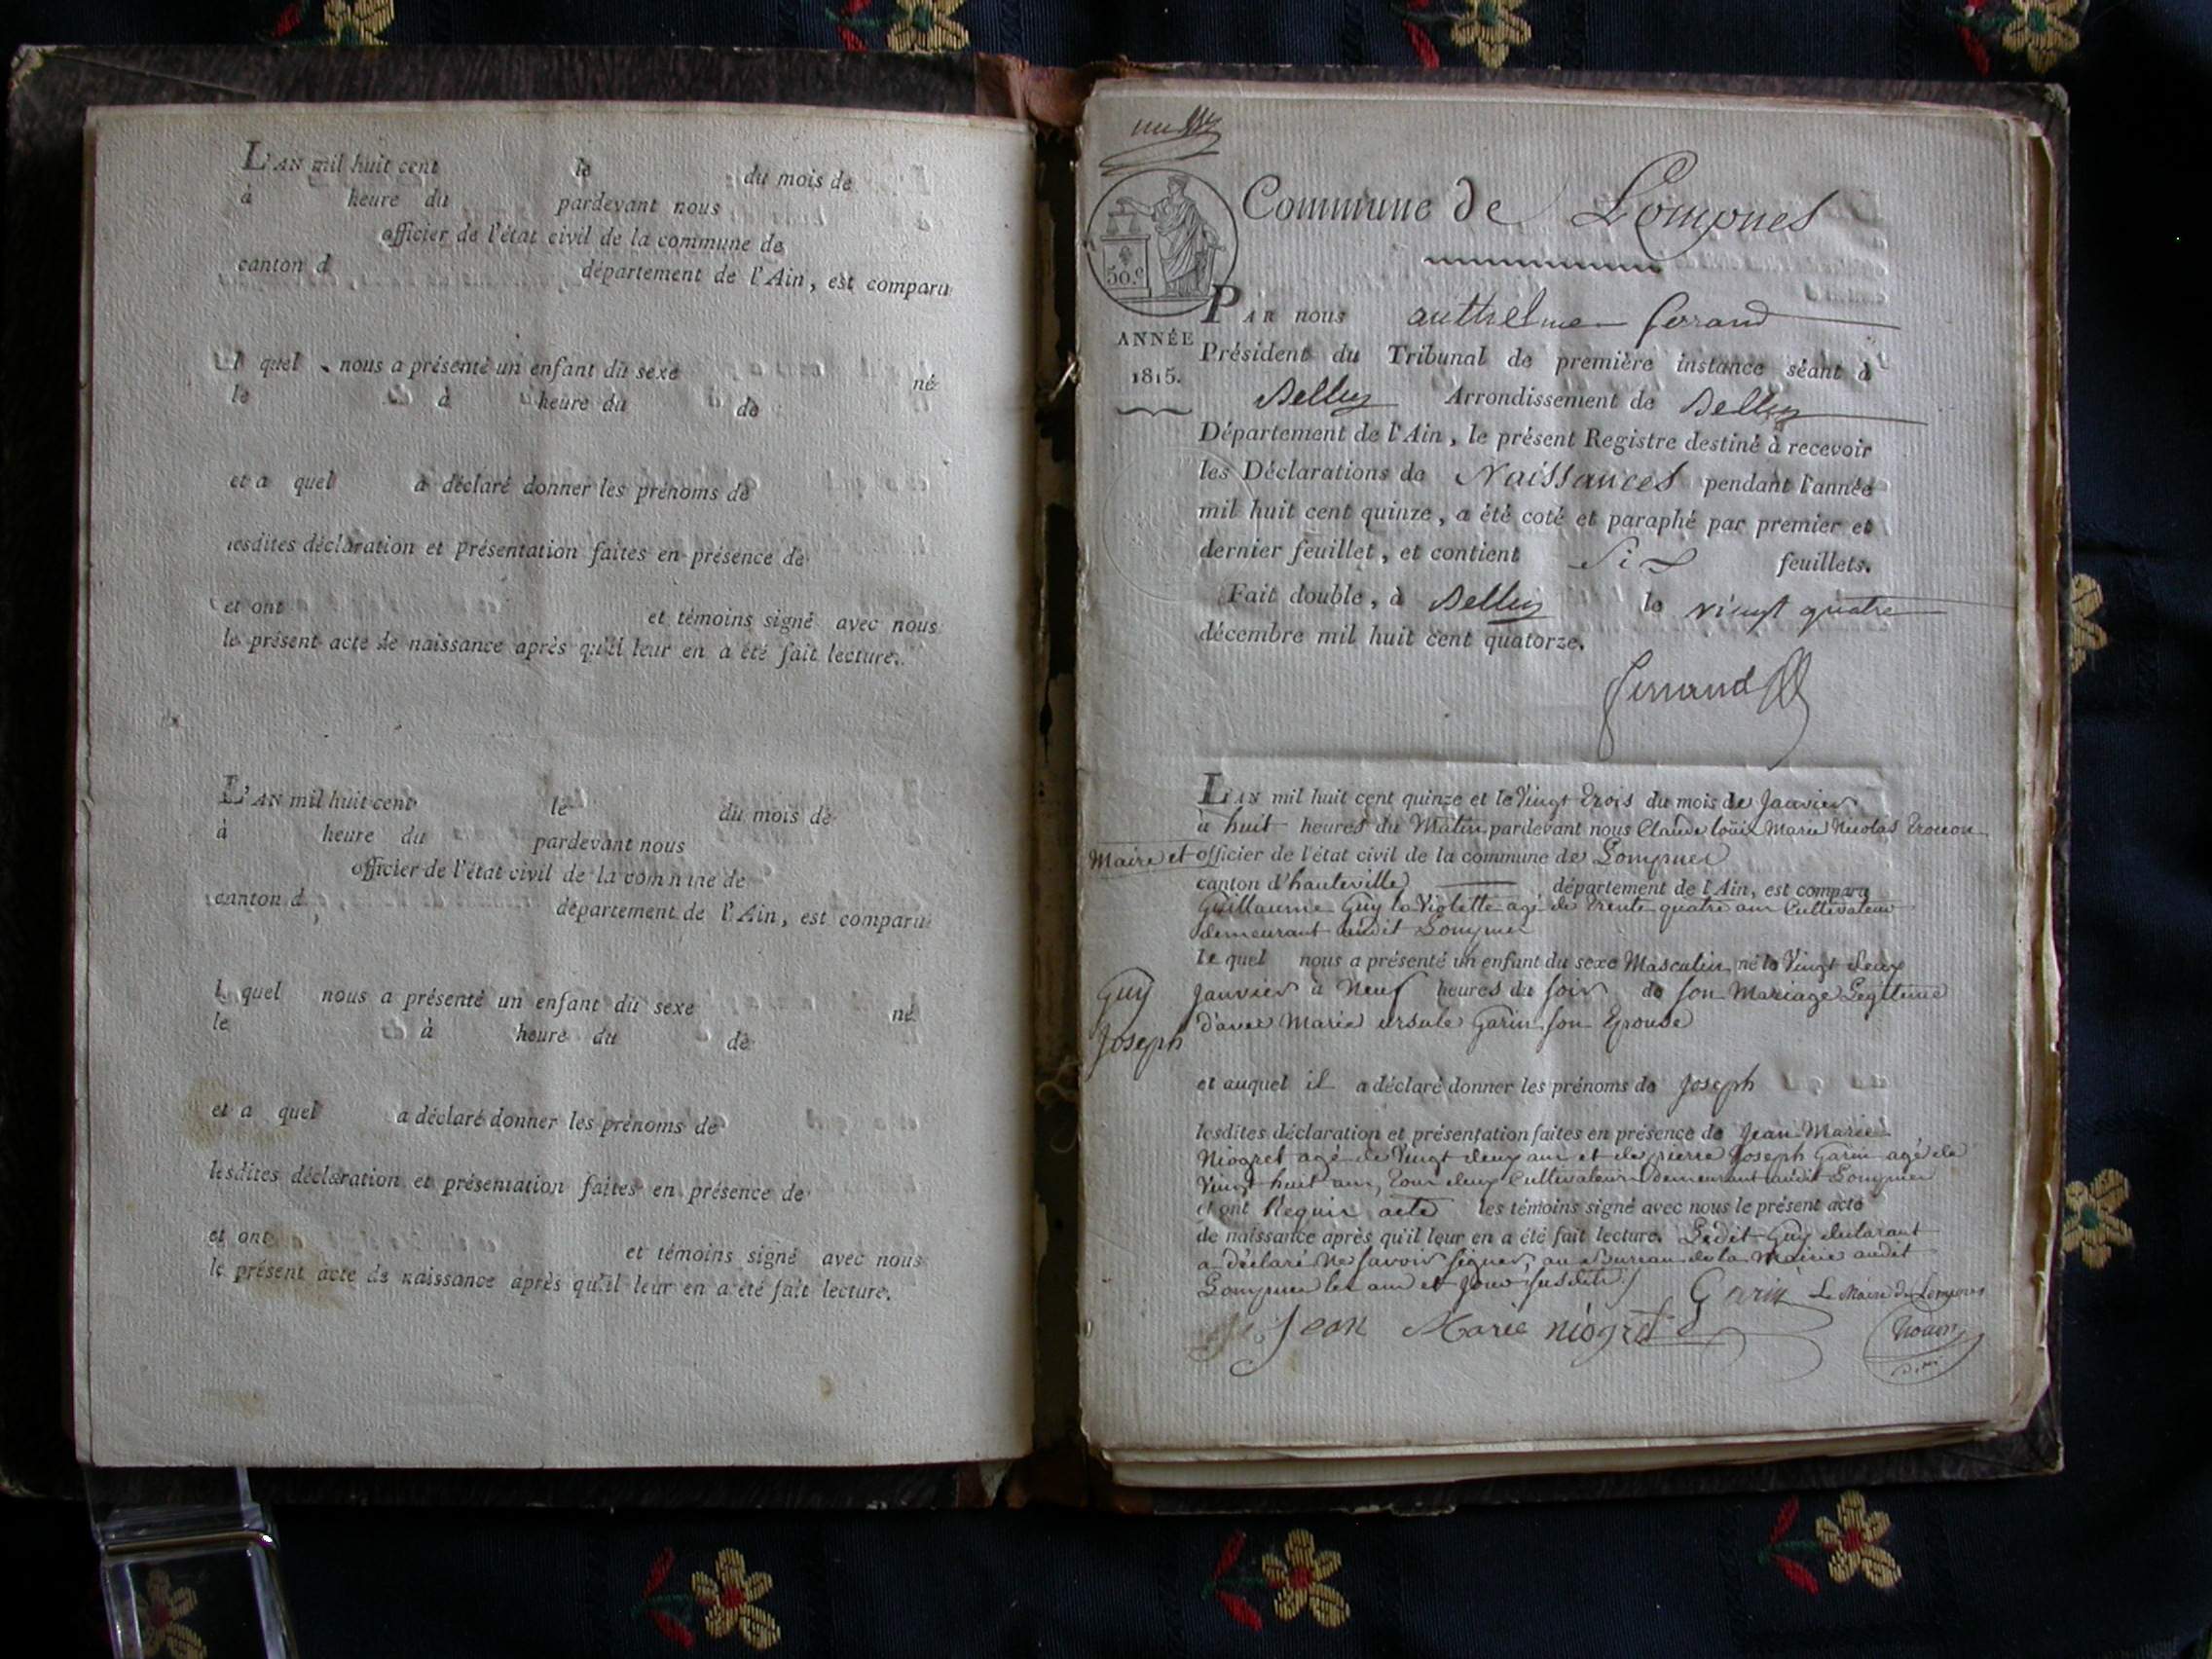 L'AN mil huit cent le du mois de
à heure du pardevant nous
officier de l'état civil de la commune de
canton d département de l'Ain, est comparu
l quel nous a présenté un enfant du sexe né
le à heure du de
et a quel a déclaré donner les prénoms de
lesdites déclaration et présentation faites en présence de
et ont et témoins signé avec nous
le présent acte de naissance après qu'il leur en a été fait lecture.
L'AN mil huit cent le du mois de
à heure du pardevant nous
officier de l'état civil de la commune de
canton d département de l'Ain, est comparu
l quel nous a présenté un enfant du sexe né
le à heure du de
et a quel a déclaré donner les prénoms de
lesdites déclaration et présentation faites en présence de
et ont et témoins signé avec nous
le présent acte de naissance après qu'il leur en a été fait lecture.
Commune de Lompnes
50.c
ANNÉE
1815.
PAR nous anthelme
Président du Tribunal de première instance séant à
Belley Arrondissement de Belley
Département de l'Ain, le présent Registre destiné à recevoir
les Déclarations de Naissances pendant l'année
mil huit cent quinze, a été coté et paraphé par premier et
dernier feuillet, et contient Six feuillets.
Fait double, à Belley le vingt quatre
décembre mil huit cent quatorze.
L'AN mil huit cent quinze et le Vingt trois du mois de Janvier
à huit heures du Matin pardevant nous Claude loüis Marie Nicolas trocon
Maire et officier de l'état civil de la commune de Lompnes
canton d'hauteville département de l'Ain, est comparu
Guillaume Guy la Violette agé de trente quatre ans Cultivateur
demeurant audit Lompnes
le quel nous a présenté un enfant du sexe Masculin né le Vingt deux
Janvier à Neuf heures du soir de son Mariage Legitime
d'avec Marie ursule Garin son Epouse
Guy
Joseph
et auquel il a déclaré donner les prénoms de Joseph
lesdites déclaration et présentation faites en présence de Jean Marie
Niogret agé de Vingt deux ans et de pierre Joseph Garin agé de
Vingt huit ans, tous deux Cultivateurs demeurant audit Lompnes
et ont Requis acte les témoins signé avec nous le présent acte
de naissance après qu'il leur en a été fait lecture. Ledit Guy declarant
a déclaré Ne savoir signer, au Bureau de la Mairie audit
Lompnes les an et Jour susdits
Garin Le Maire de Lompnes
Jean Marie niogret